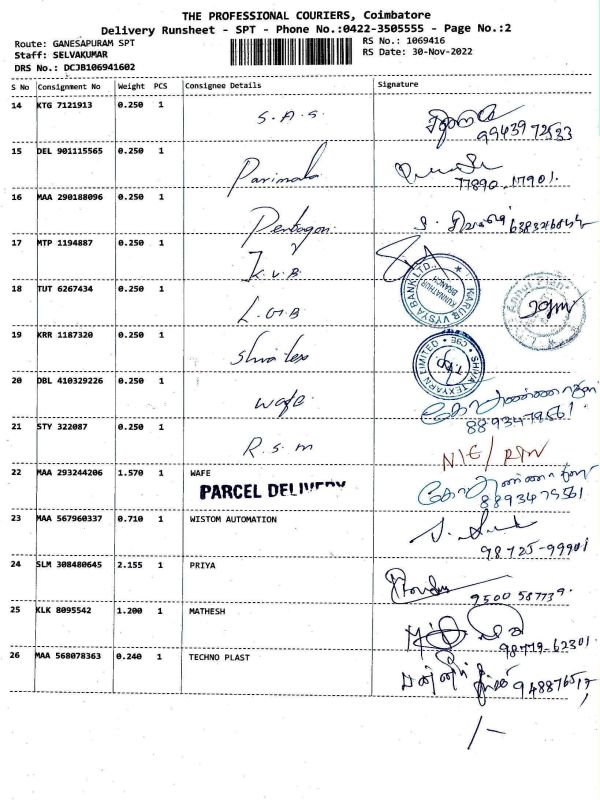 THE PROFESSIONAL COURIERS, Coimbatore
Delivery Runsheet - SPT - Phone No.:0422-3505555 - Page No.:2
Route: GANESAPURAM SPT RS No.: 1069416
Staff: SELVAKUMAR RS Date: 30-Nov-2022
DRS No.: DCJB106941602
S No Consignment No Weight PCS Consignee Details Signature
14 KTG 7121913 0.250 1 S.A.S.
9943972533
15 DEL 901115565 0.250 1 Parimala
77890-17901.
16 MAA 290188096 0.250 1 Pentagon
17 MTP 1194887 0.250 1 K.V.B
KARUR VYSYA BANK LTD.,
KUNNATHUR
BRANCH
18 TUT 6267434 0.250 1 L.G.B
19 KRR 1187320 0.250 1 Shiva tex
SHIVA TEXYARN LIMITED CBE
20 DBL 410329226 0.250 1 wafe
8893479561
21 STY 322087 0.250 1 R.S.M
22 MAA 293244206 1.570 1 WAFE
PARCEL DELIVERY
8893475561
23 MAA 567960337 0.710 1 WISTOM AUTOMATION
98725-99901
24 SLM 308480645 2.155 1 PRIYA
9500587739.
25 KLK 8095542 1.200 1 MATHESH
98779-62301
26 MAA 568078363 0.240 1 TECHNO PLAST